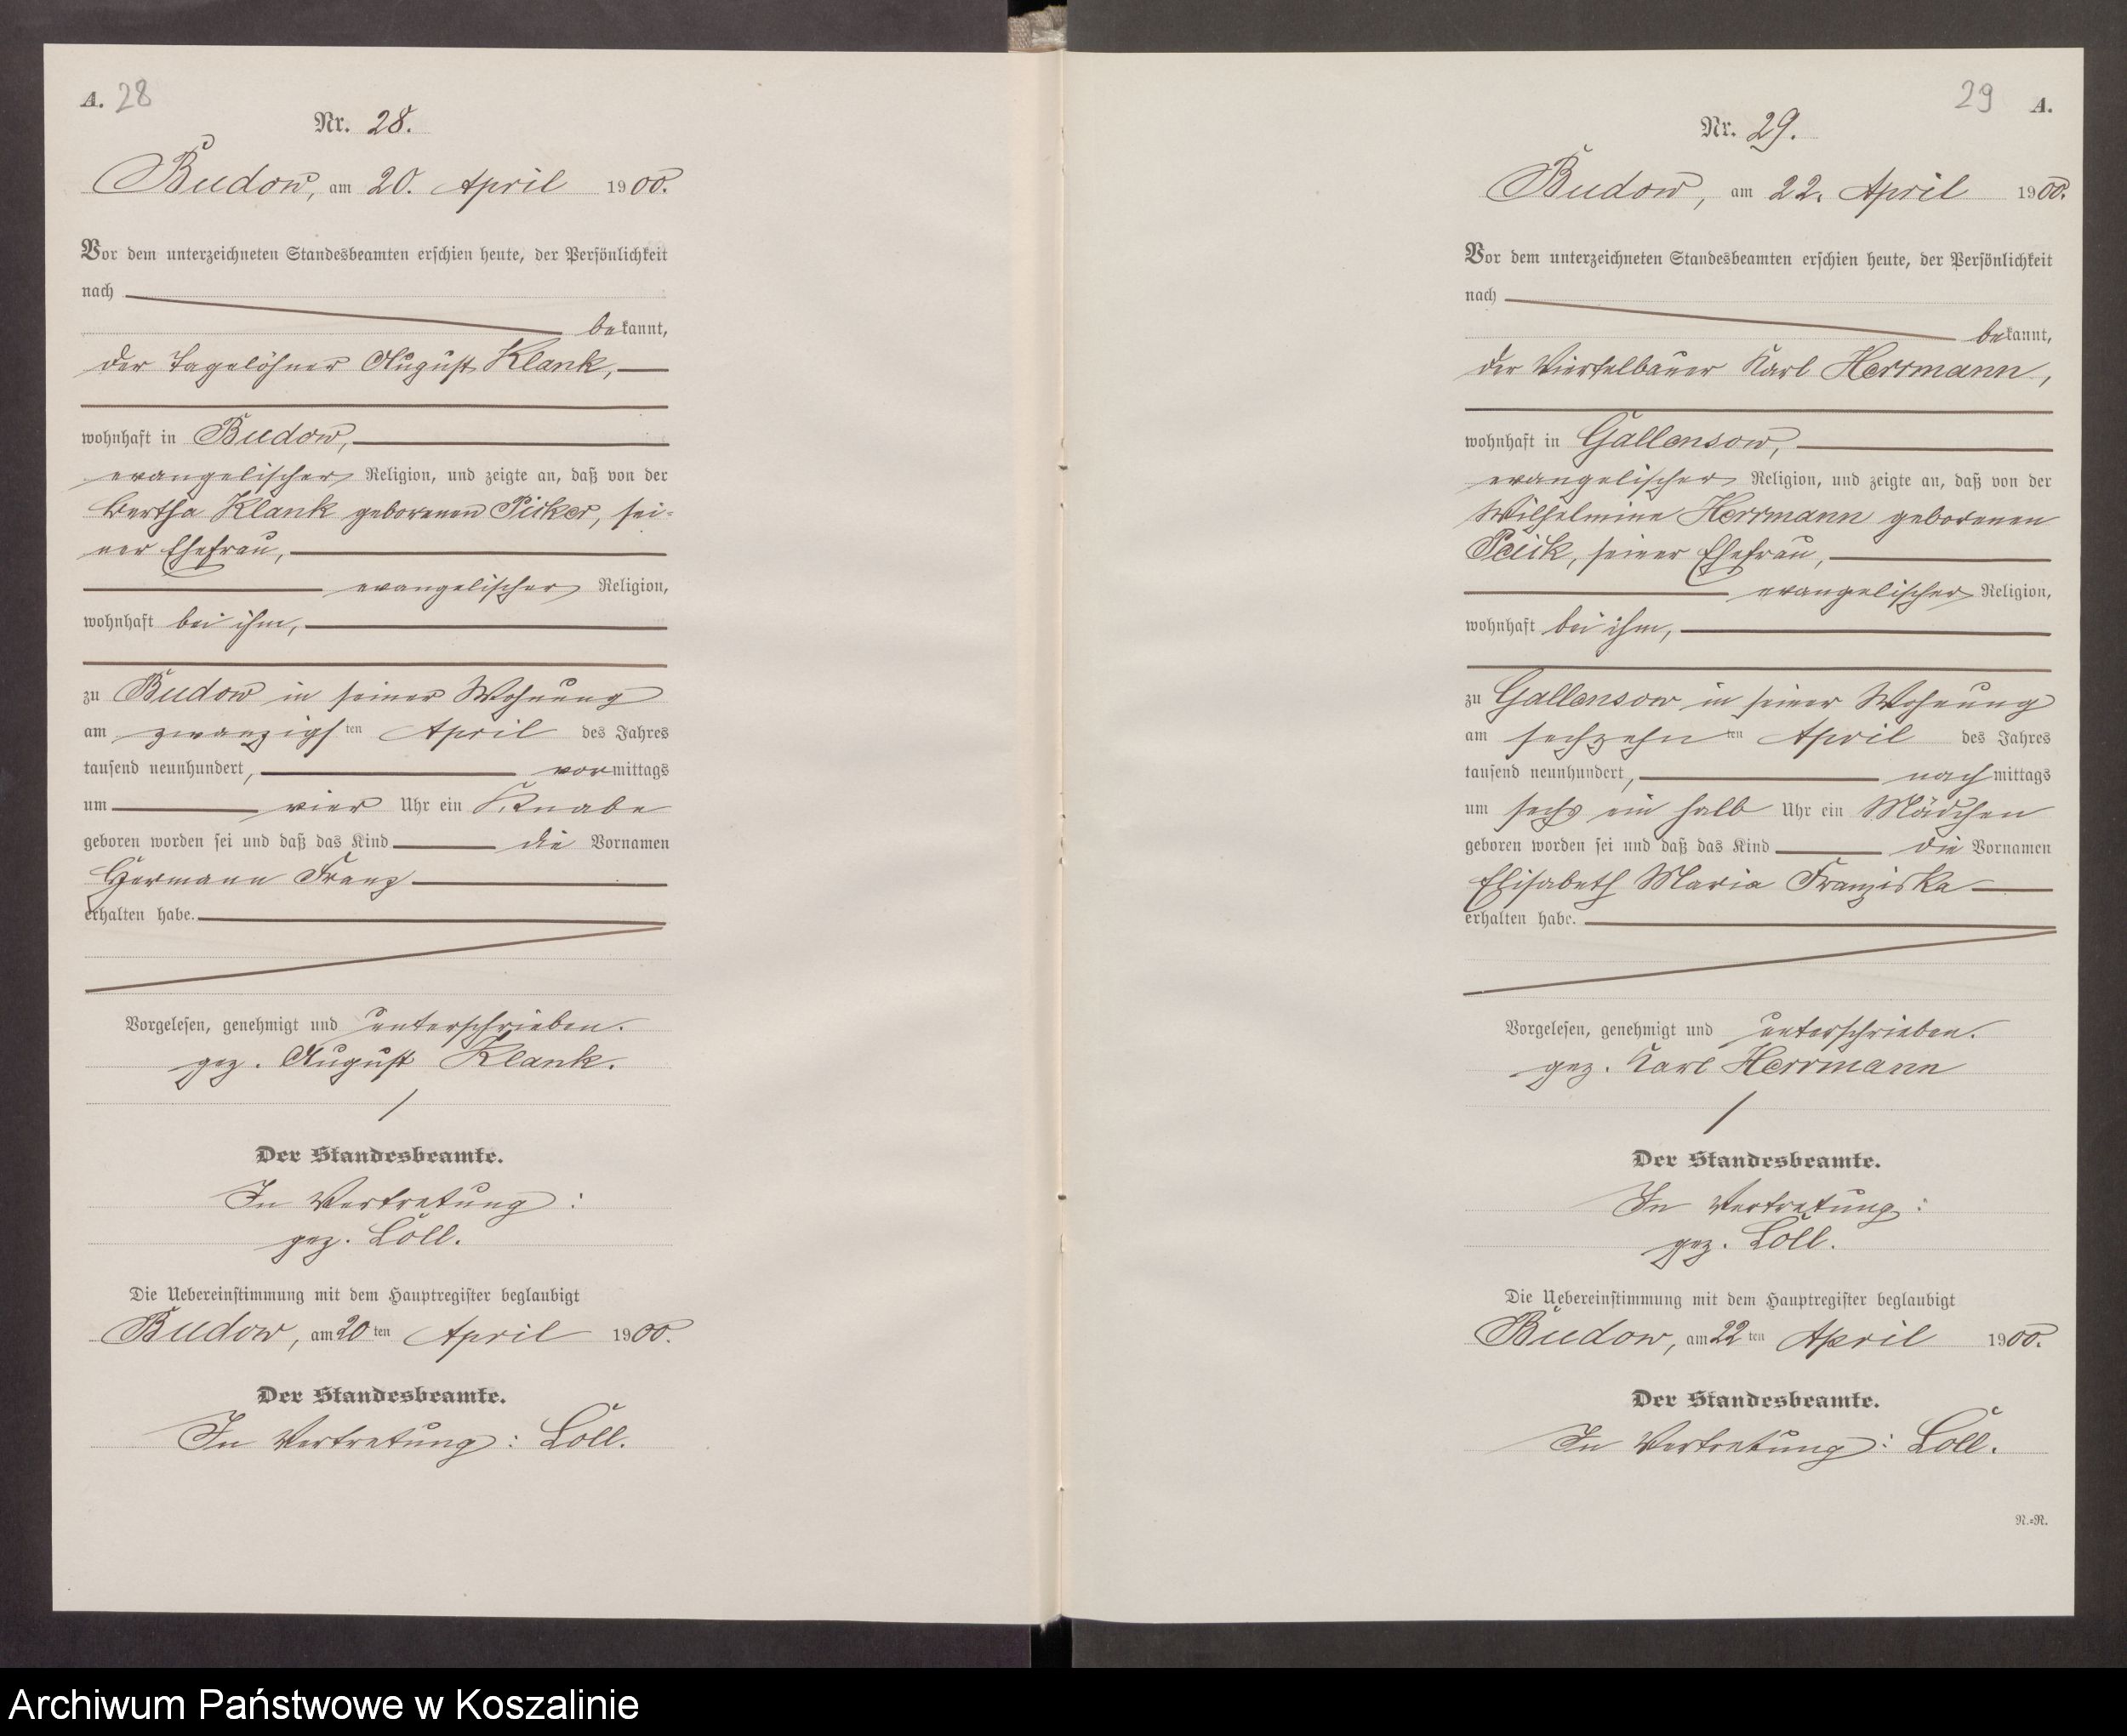 A. 28
Nr. 28.
Budow, am 20. April 1900.
Vor dem unterzeichneten Standesbeamten erschien heute, der Persönlichkeit
nach
bekannt,
der Tagelöhner August Klank,
wohnhaft in Budow,
evangelischer Religion, und zeigte an, daß von der
Bertha Klank geborenen Piker, sei-
ner Ehefrau,
evangelischer Religion,
wohnhaft bei ihm,
zu Budow in seiner Wohnung
am zwanzigsten April des Jahres
tausend neunhundert, vormittags
um vier Uhr ein Knabe
geboren worden sei und daß das Kind die Vornamen
Hermann Franz
erhalten habe.
Vorgelesen, genehmigt und unterschrieben.
gez. August Klank.
Der Standesbeamte.
In Vertretung:
gez. Löll.
Die Uebereinstimmung mit dem Hauptregister beglaubigt
Budow, am 20ten April 1900.
Der Standesbeamte.
In Vertretung: Löll.
29 A.
Nr. 29.
Budow, am 22. April 1900.
Vor dem unterzeichneten Standesbeamten erschien heute, der Persönlichkeit
nach
bekannt,
der Viertelbauer Karl Herrmann,
wohnhaft in Gallensow,
evangelischer Religion, und zeigte an, daß von der
Wilhelmine Herrmann geborenen
seiner Ehefrau,
evangelischer Religion,
wohnhaft bei ihm,
zu Gallensow in seiner Wohnung
am sechzehnten April des Jahres
tausend neunhundert, nachmittags
um sechs ein halb Uhr ein Mädchen
geboren worden sei und daß das Kind die Vornamen
Elisabeth Maria Franziska
erhalten habe.
Vorgelesen, genehmigt und unterschrieben.
gez. Karl Herrmann
Der Standesbeamte.
In Vertretung:
gez. Löll.
Die Uebereinstimmung mit dem Hauptregister beglaubigt
Budow, am 22ten April 1900.
Der Standesbeamte.
In Vertretung: Löll.
N.=R.
Archiwum Państwowe w Koszalinie